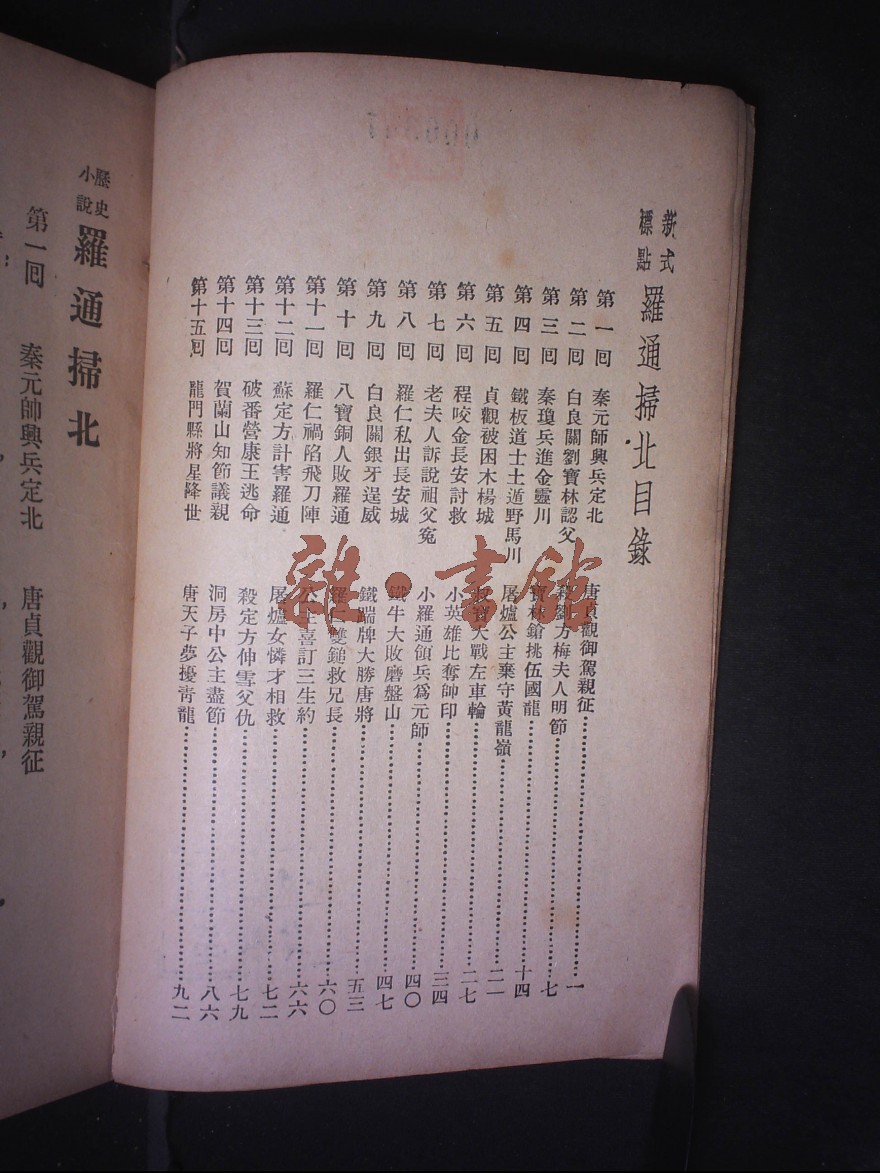 新式標點 羅通掃北目錄
第一回 秦元師興兵定北 唐貞觀御駕親征 一
第二回 白良關劉寶林認父 殺劉方梅夫人明節 七
第三回 秦瓊兵進金靈川 寶林鎗挑伍國龍 十四
第四回 鐵板道士土遁野馬川 屠爐公主棄守黃龍嶺 二一
第五回 貞觀被困木楊城 叔寶大戰左車輪 二七
第六回 程咬金長安討救 小英雄比奪帥印 三四
第七回 老夫人訴說祖父冤 小羅通領兵爲元師 四〇
第八回 羅仁私出長安城 鐵牛大敗磨盤山 四七
第九回 白良關銀牙逞威 鐵踹牌大勝唐將 五三
第十回 八寶銅人敗羅通 羅仁雙鎚救兄長 六〇
第十一回 羅仁禍陷飛刀陣 公主喜訂三生約 六六
第十二回 蘇定方計害羅通 屠爐女憐才相救 七二
第十三回 破番營康王逃命 殺定方伸雪父仇 七九
第十四回 賀蘭山知節議親 洞房中公主盡節 八六
第十五回 龍門縣將星降世 唐天子夢擾靑龍 九二
雜·書館
歷史小說 羅通掃北
第一回 秦元帥興兵定北 唐貞觀御駕親征